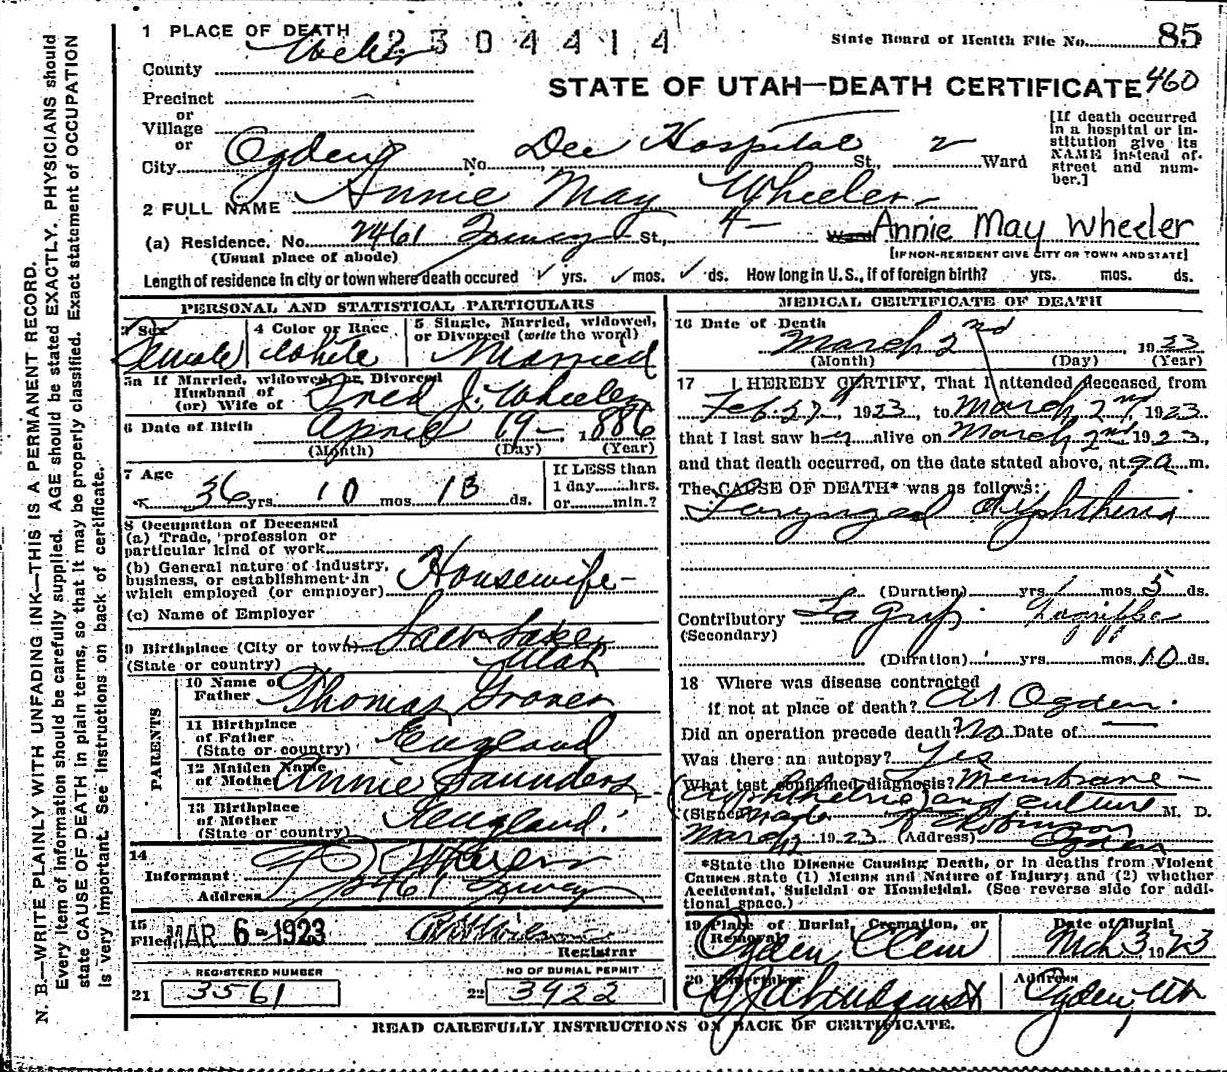 1 PLACE OF DEATH 2304414
State Board of Health File No. 85
County Weber
STATE OF UTAH—DEATH CERTIFICATE 460
Precinct
or
Village
or
City Ogden No. Dee Hospital St., 2 Ward
[If death occurred in a hospital or institution give its NAME instead of street and number.]
2 FULL NAME Annie May Wheeler
(a) Residence. No. 2461 St., 4 Annie May Wheeler
(Usual place of abode) [IF NON-RESIDENT GIVE CITY OR TOWN AND STATE]
Length of residence in city or town where death occured yrs. mos. ds. How long in U. S., if of foreign birth? yrs. mos. ds.
PERSONAL AND STATISTICAL PARTICULARS
3 Sex Female
4 Color or Race White
5 Single, Married, widowed, or Divorced (write the word) Married
5a If Married, widowed or Divorced
Husband of
(or) Wife of Fred J. Wheeler
6 Date of Birth April 19 – 1886
(Month) (Day) (Year)
7 Age 36 yrs. 10 mos. 13 ds.
If LESS than
1 day hrs.
or min.?
8 Occupation of Deceased
(a) Trade, profession or
particular kind of work
(b) General nature of industry,
business, or establishment in
which employed (or employer) Housewife –
(c) Name of Employer
9 Birthplace (City or town) Salt Lake
(State or country) Utah
PARENTS
10 Name of Father Thomas Grover
11 Birthplace of Father (State or country) England
12 Maiden Name of Mother Annie Saunders
13 Birthplace of Mother (State or country) England.
14
Informant Wheeler
Address 2461
15
Filed MAR 6-1923
Registrar
REGISTERED NUMBER
21 3561
NO OF BURIAL PERMIT
22 3922
MEDICAL CERTIFICATE OF DEATH
16 Date of Death
March 2nd 1923
(Month) (Day) (Year)
17 I HEREBY CERTIFY, That I attended deceased from
Feb. 27, 1923, to March 2nd, 1923
that I last saw her alive on March 2nd 1923,
and that death occurred, on the date stated above, at 9 a m.
The CAUSE OF DEATH* was as follows:
Laryngeal diphtheria
(Duration) yrs. mos. 5 ds.
Contributory La Grip Lagrippe
(Secondary)
(Duration) yrs. mos. 10 ds.
18 Where was disease contracted
if not at place of death? At Ogden.
Did an operation precede death? No Date of —
Was there an autopsy? Yes
What test confirmed diagnosis? Membrane –
(diphtheria) and culture
(Signed) Robinson M. D.
March 1923 (Address) Ogden
*State the Disease Causing Death, or in deaths from Violent
Causes state (1) Means and Nature of Injury; and (2) whether
Accidental, Suicidal or Homicidal. (See reverse side for additional space.)
19 Place of Burial, Cremation, or Removal Ogden Cem
Date of Burial Mch 3 1923
20 Undertaker Lindquist
Address Ogden, Utah
READ CAREFULLY INSTRUCTIONS ON BACK OF CERTIFICATE.
N. B.—WRITE PLAINLY WITH UNFADING INK—THIS IS A PERMANENT RECORD.
Every item of information should be carefully supplied. AGE should be stated EXACTLY. PHYSICIANS should
state CAUSE OF DEATH in plain terms, so that it may be properly classified. Exact statement of OCCUPATION
is very important. See instructions on back of certificate.